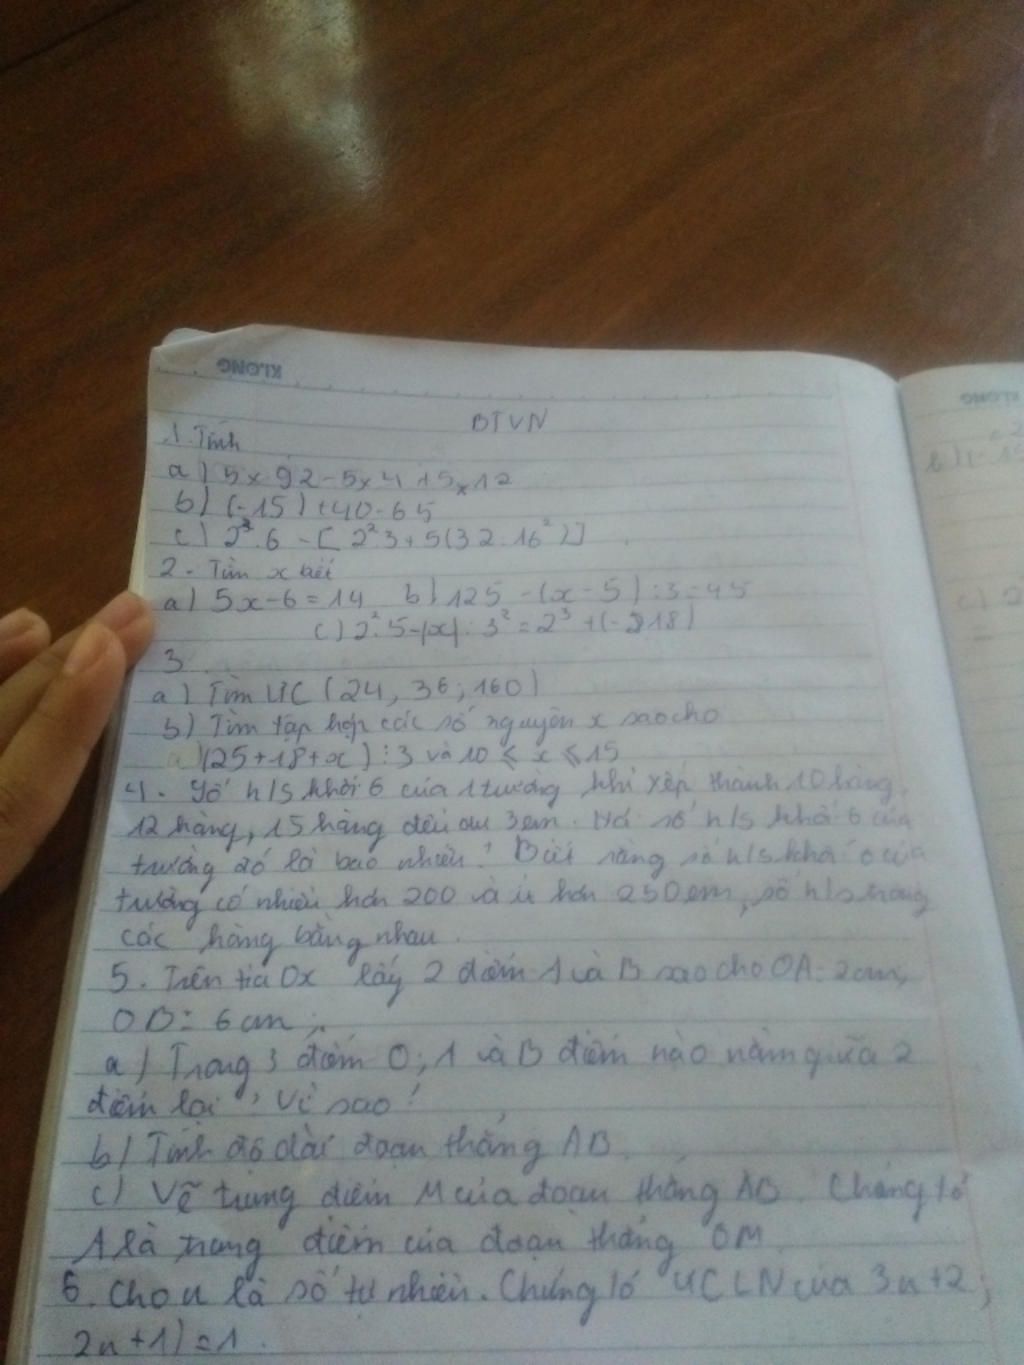 KLONG
KLONG
BTVN
1. Tính
a) 5 x 92 - 5 x 4 + 5 x 12
b) (-15) + 40 - 65
c) 2³.6 - [2².3 + 5(32 - 16²)]
2. Tìm x biết
a) 5x - 6 = 14 b) 125 - (x - 5) : 3 = 45
c) 2².5 - |x| : 3² = 2³ +
3.
a) Tìm ƯC (24, 36, 160)
b) Tìm tập hợp các số nguyên x sao cho
a) (25 + 18 + x) ⋮ 3 và 10 ≤ x ≤ 15
4. Số h/s khối 6 của 1 trường khi xếp thành 10 hàng,
12 hàng, 15 hàng đều dư 3 em. Hỏi số h/s khối 6 của
trường đó là bao nhiêu? Biết rằng số h/s khối 6 của
trường có nhiều hơn 200 và ít hơn 250 em, số h/s trong
các hàng bằng nhau.
5. Trên tia Ox lấy 2 điểm A và B sao cho OA = 2cm,
OB = 6 cm.
a) Trong 3 điểm O, A và B điểm nào nằm giữa 2
điểm lại? Vì sao?
b) Tính độ dài đoạn thẳng AB.
c) Vẽ trung điểm M của đoạn thẳng AB. Chứng tỏ
A là trung điểm của đoạn thẳng OM.
6. Cho n là số tự nhiên. Chứng tỏ ƯCLN của 3n + 2,
2n + 1) = 1.